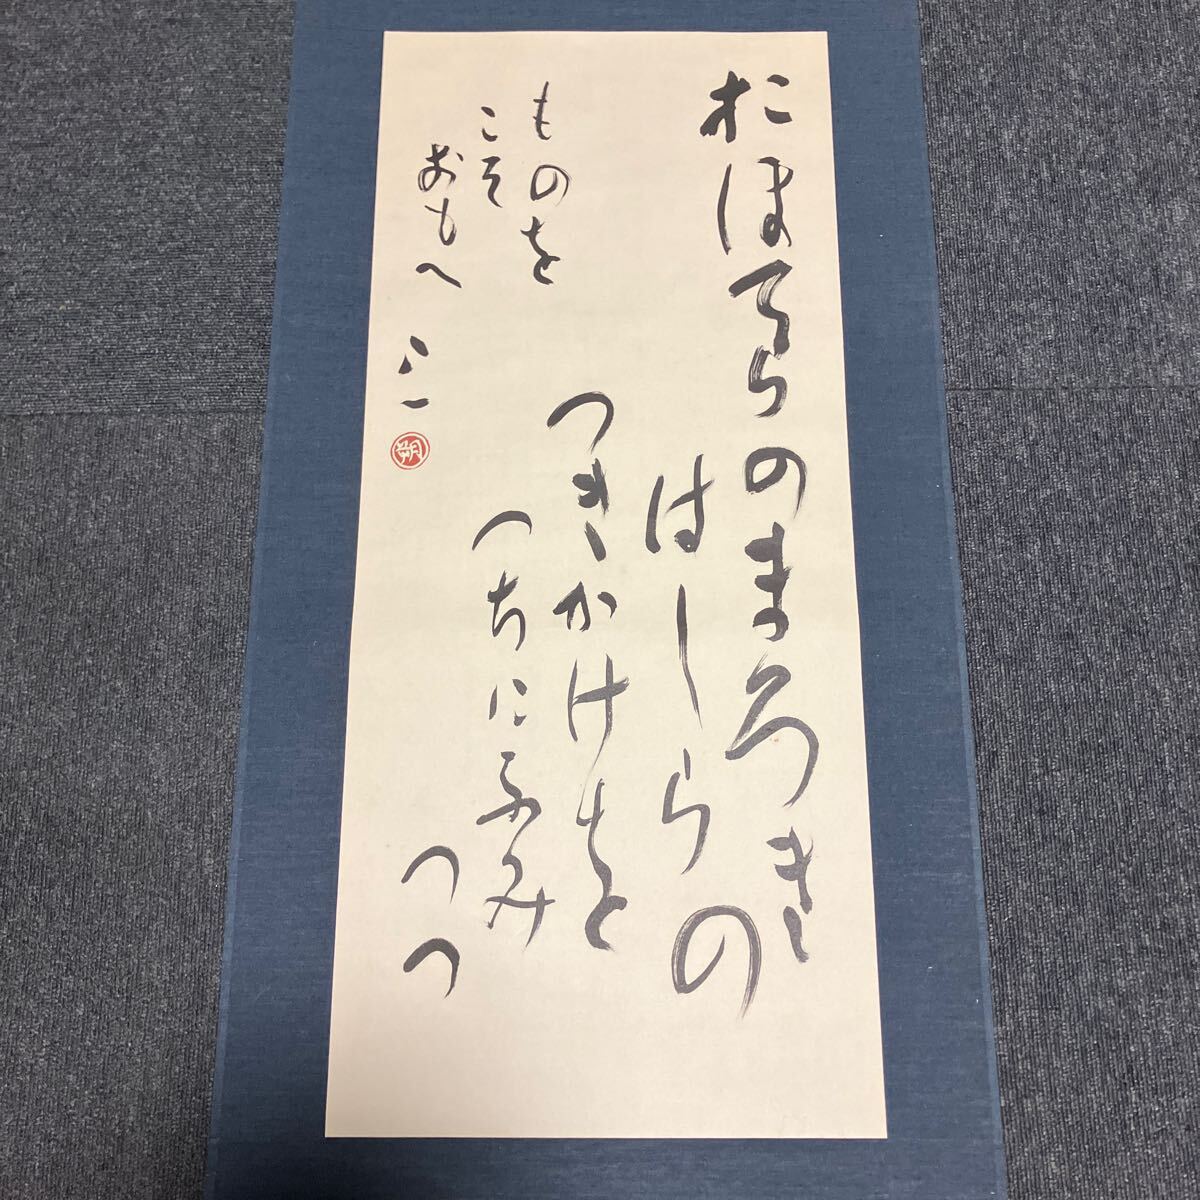 おほてらのまろき
はしらの
つきかけを
つちにふみ
つつ
ものを
こそ
おもへ